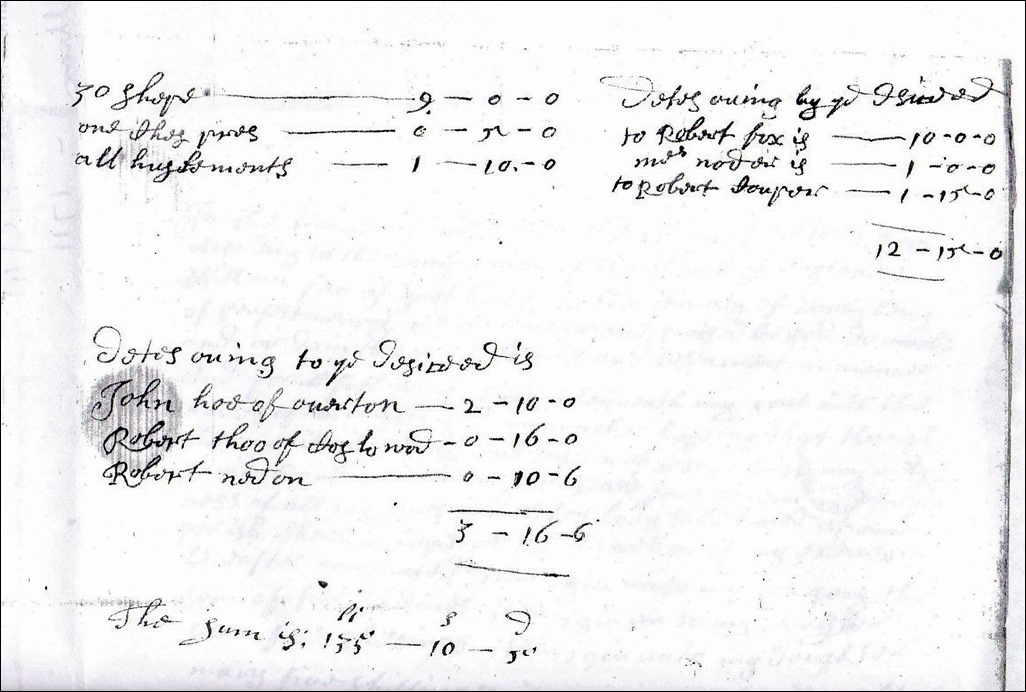 30 shepe 9 - 0 - 0
one Ches pres 0 - 5 - 0
all huslements 1 - 10 - 0
Detes ouing by ye desised
to Robert fox is 10 - 0 - 0
mes noder is 1 - 0 - 0
to Robert Couper 1 - 15 - 0
12 - 15 - 0
Detes ouing to ye desiceed is
John hoe of ouerton 2 - 10 - 0
Robert thoo of 0 - 16 - 0
Robert nedon 0 - 10 - 6
3 - 16 - 6
li s d
The sum is: 135 - 10 -